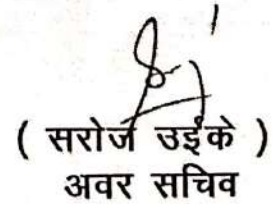 ( सरोज उईके )
अवर सचिव